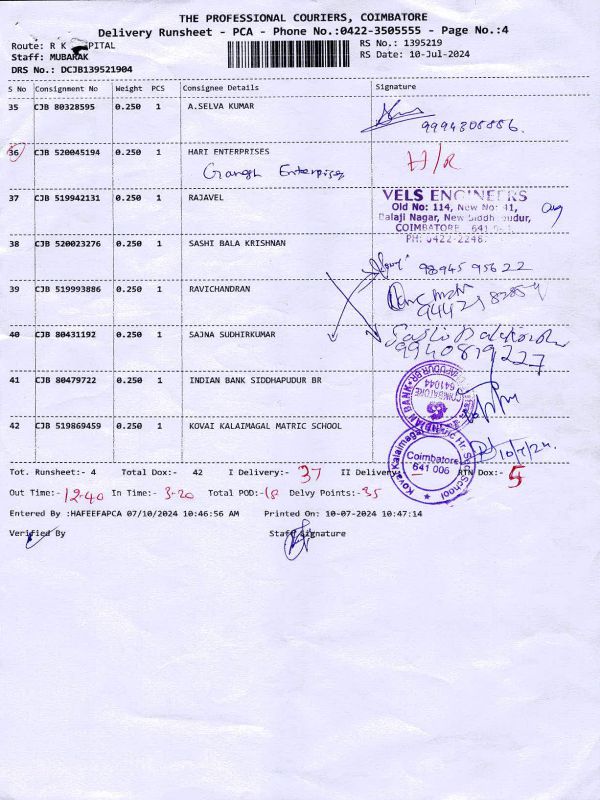 THE PROFESSIONAL COURIERS, COIMBATORE
Delivery Runsheet - PCA - Phone No.:0422-3505555 - Page No.:4
Route: R K PITAL
RS No.: 1395219
Staff: MUBARAK
RS Date: 10-Jul-2024
DRS No.: DCJB139521904
S No Consignment No Weight PCS Consignee Details Signature
35 CJB 80328595 0.250 1 A.SELVA KUMAR
9994308886.
36 CJB 520045194 0.250 1 HARI ENTERPRISES H/R
Ganesh Enterprises
37 CJB 519942131 0.250 1 RAJAVEL
VELS ENGINEERS
Old No: 114, New No: 41,
Balaji Nagar, New Siddhapudur,
COIMBATORE 641
PH: 0422-2248
38 CJB 520023276 0.250 1 SASHI BALA KRISHNAN
98945 95622
39 CJB 519993886 0.250 1 RAVICHANDRAN
40 CJB 80431192 0.250 1 SAJNA SUDHIRKUMAR
9940819227
41 CJB 80479722 0.250 1 INDIAN BANK SIDDHAPUDUR BR
INDIAN BANK
COIMBATORE
641044
42 CJB 519869459 0.250 1 KOVAI KALAIMAGAL MATRIC SCHOOL
Kovai Kalaimagal Matric Hr. Sec. School
Coimbatore
641 006
10/7/24.
Tot. Runsheet:- 4 Total Dox:- 42 I Delivery:- 37 II Delivery: RTN Dox:- 5
Out Time:- 12-40 In Time:- 3-20 Total POD:- 18 Delvy Points:- 35
Entered By :HAFEEFAPCA 07/10/2024 10:46:56 AM Printed On: 10-07-2024 10:47:14
Verified By Staff Signature